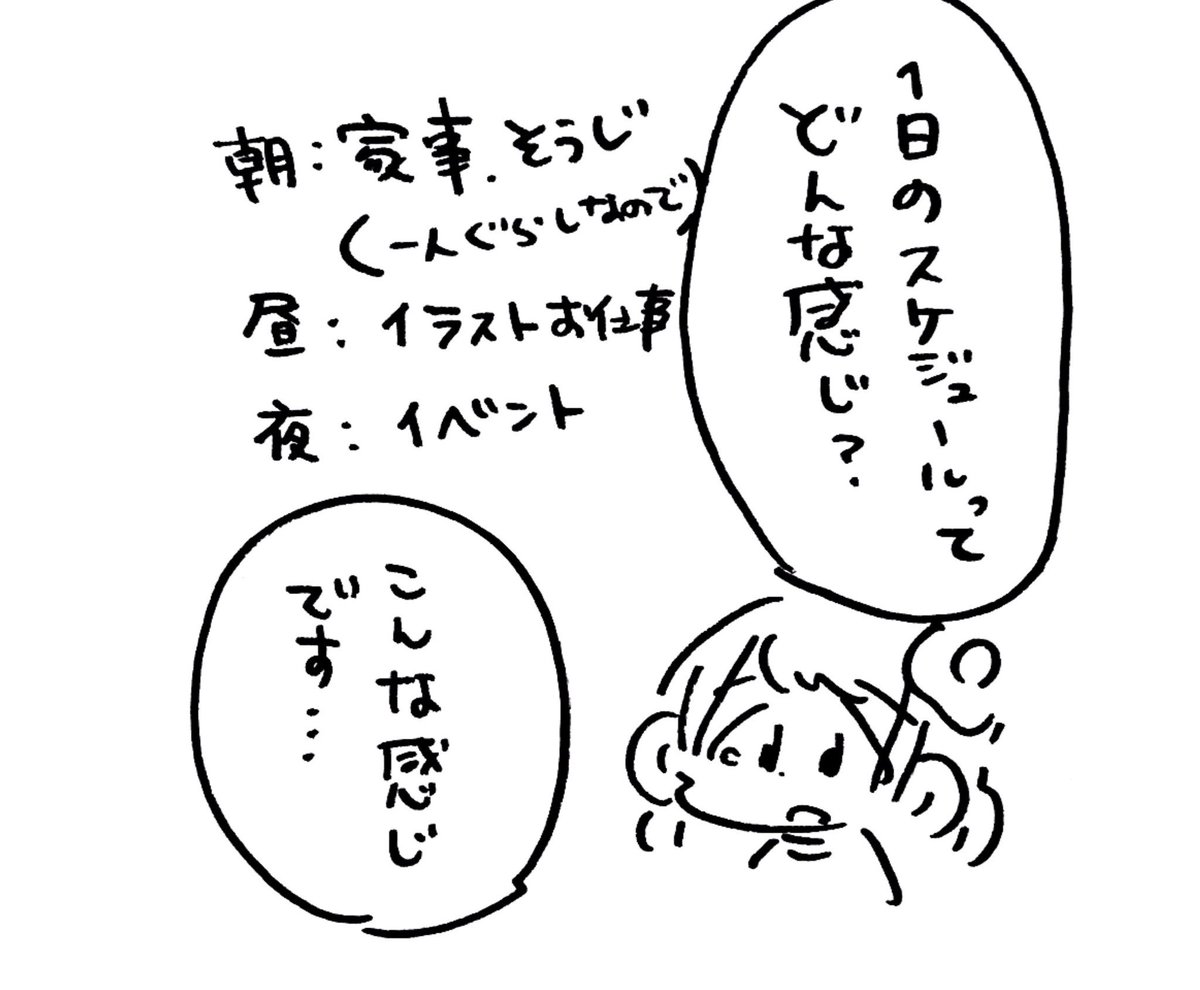 1日のスケジュールって
どんな感じ?
朝:家事.そうじ
(一人ぐらしなので)
昼:イラストお仕事
夜:イベント
こんな感じ
です…